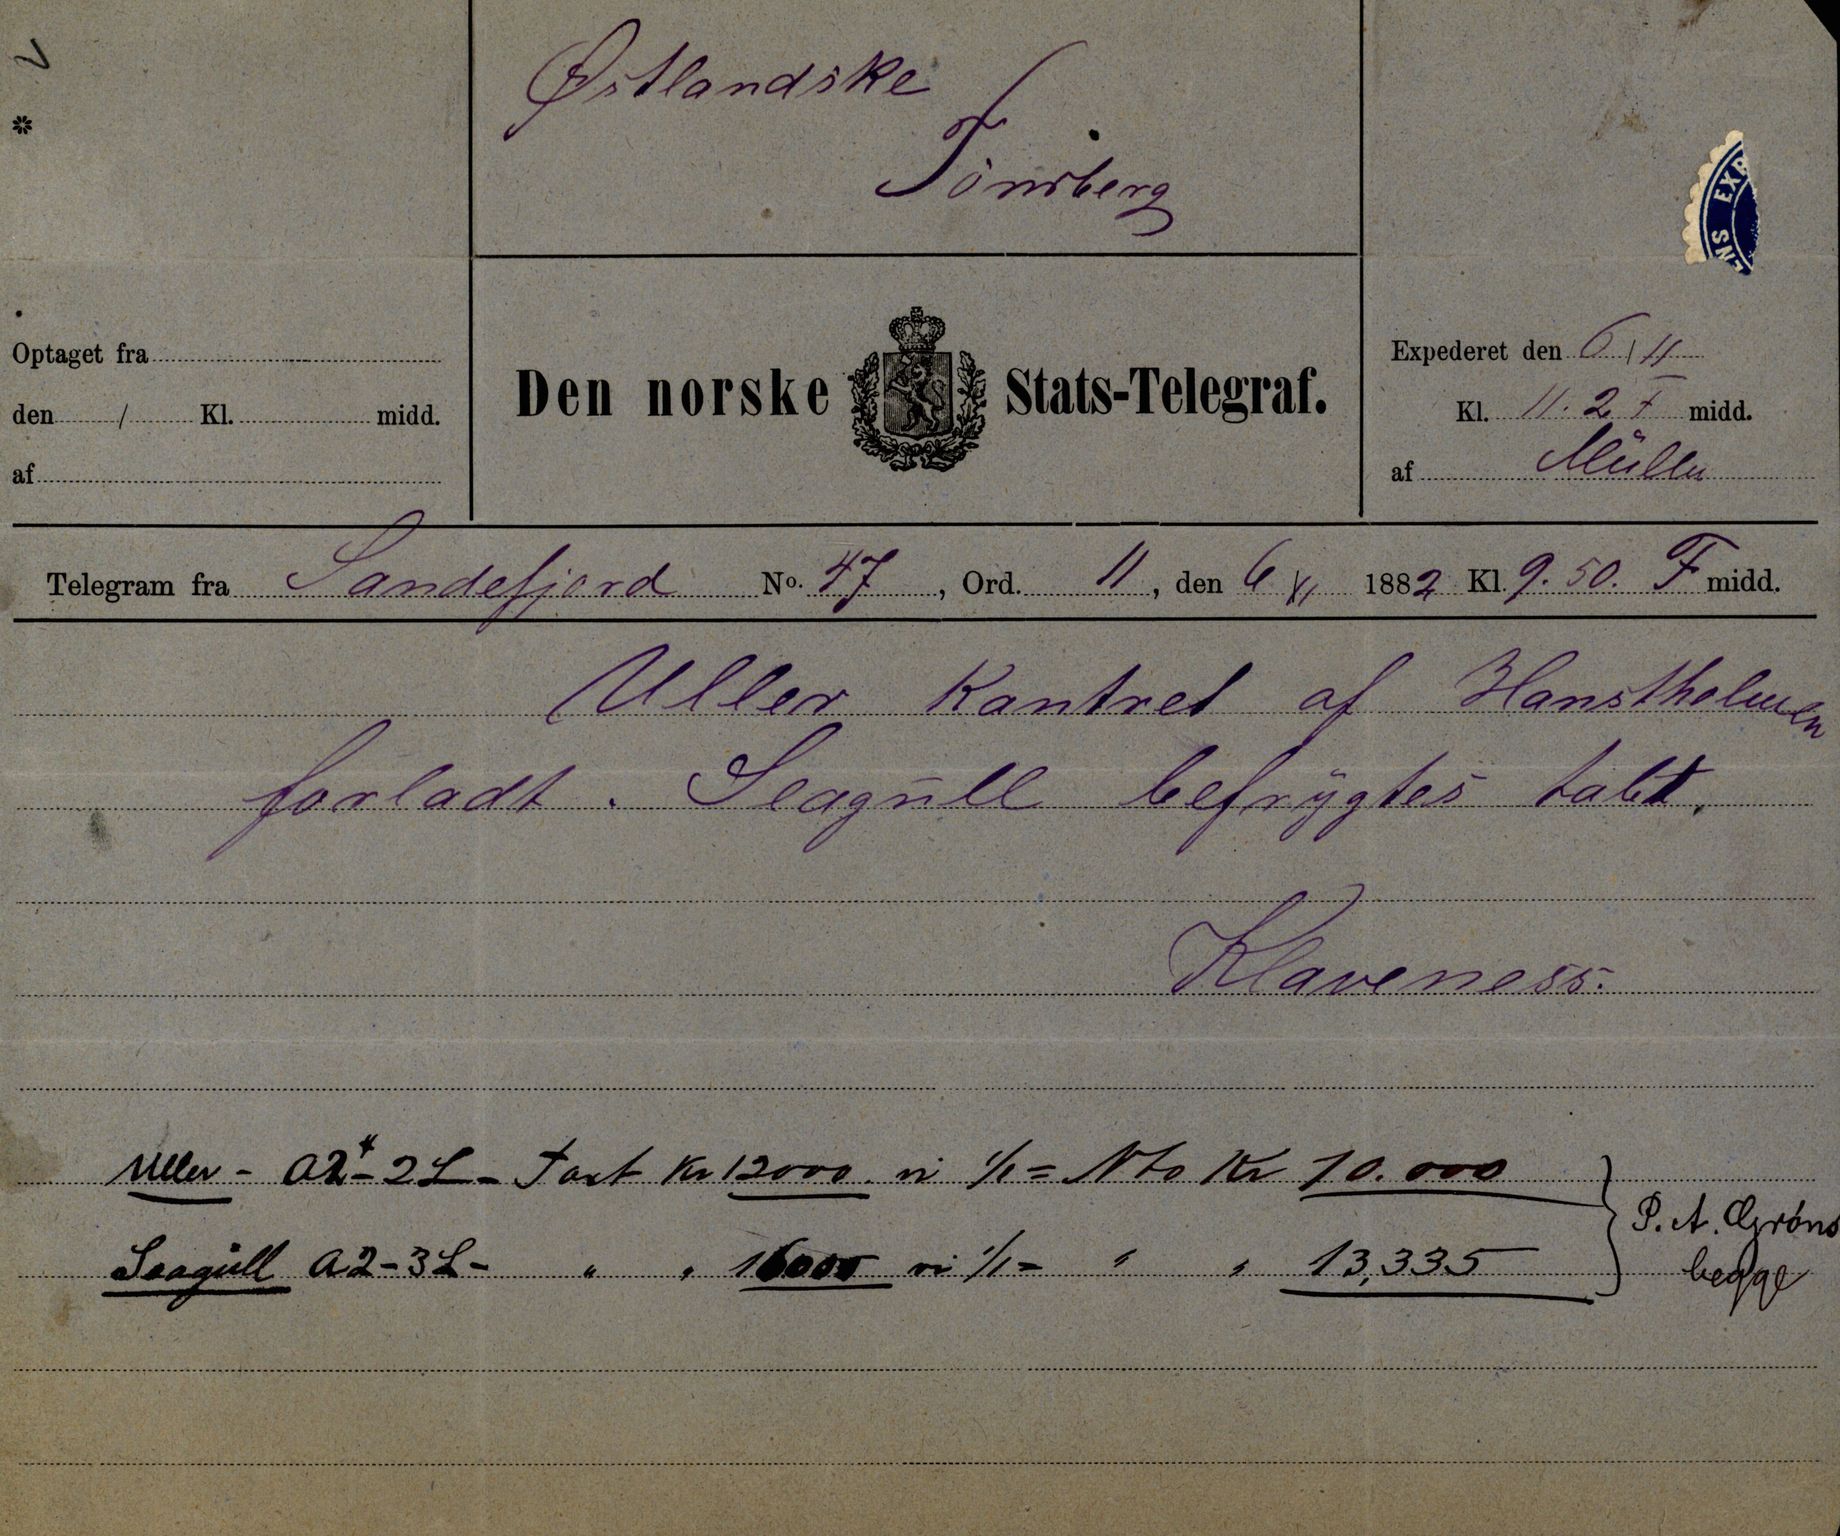 Østlandske
Tönsberg
ENS EXP
Optaget fra
den / Kl. midd.
af
Den norske Stats-Telegraf.
Expederet den 6/11
Kl. 11.2 F midd.
af Müller
Telegram fra Sandefjord No. 47, Ord. 11, den 6/11 1882 Kl. 9.50. F midd.
Uller kantret af Hanstholmen
forladt. Seagull befrygtes tabt.
Klaveness.
Uller - A2 - 2L - Taxt Kr 12000 vi 1/1 = Nto Kr 10.000
Seagull A2 - 3L - " " 16000 vi 1/1 = " " 13,335
P. A. Grøns
begge